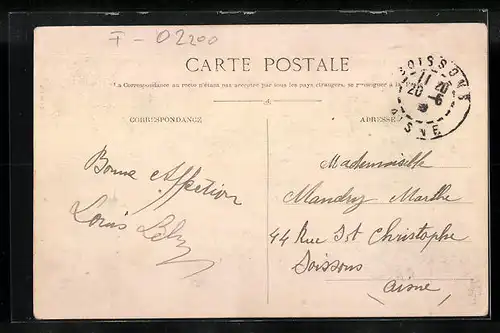 F - 02200
CARTE POSTALE
La Correspondance au recto n'étant pas acceptée par tous les pays étrangers, se renseigner à la
SOISSONS
11 20
20 - 6
AISNE
CORRESPONDANCE
ADRESSE
Bonne Affection
Louis
Mademoiselle
Mandry Marthe
44 Rue St Christophe
Soissons
Aisne